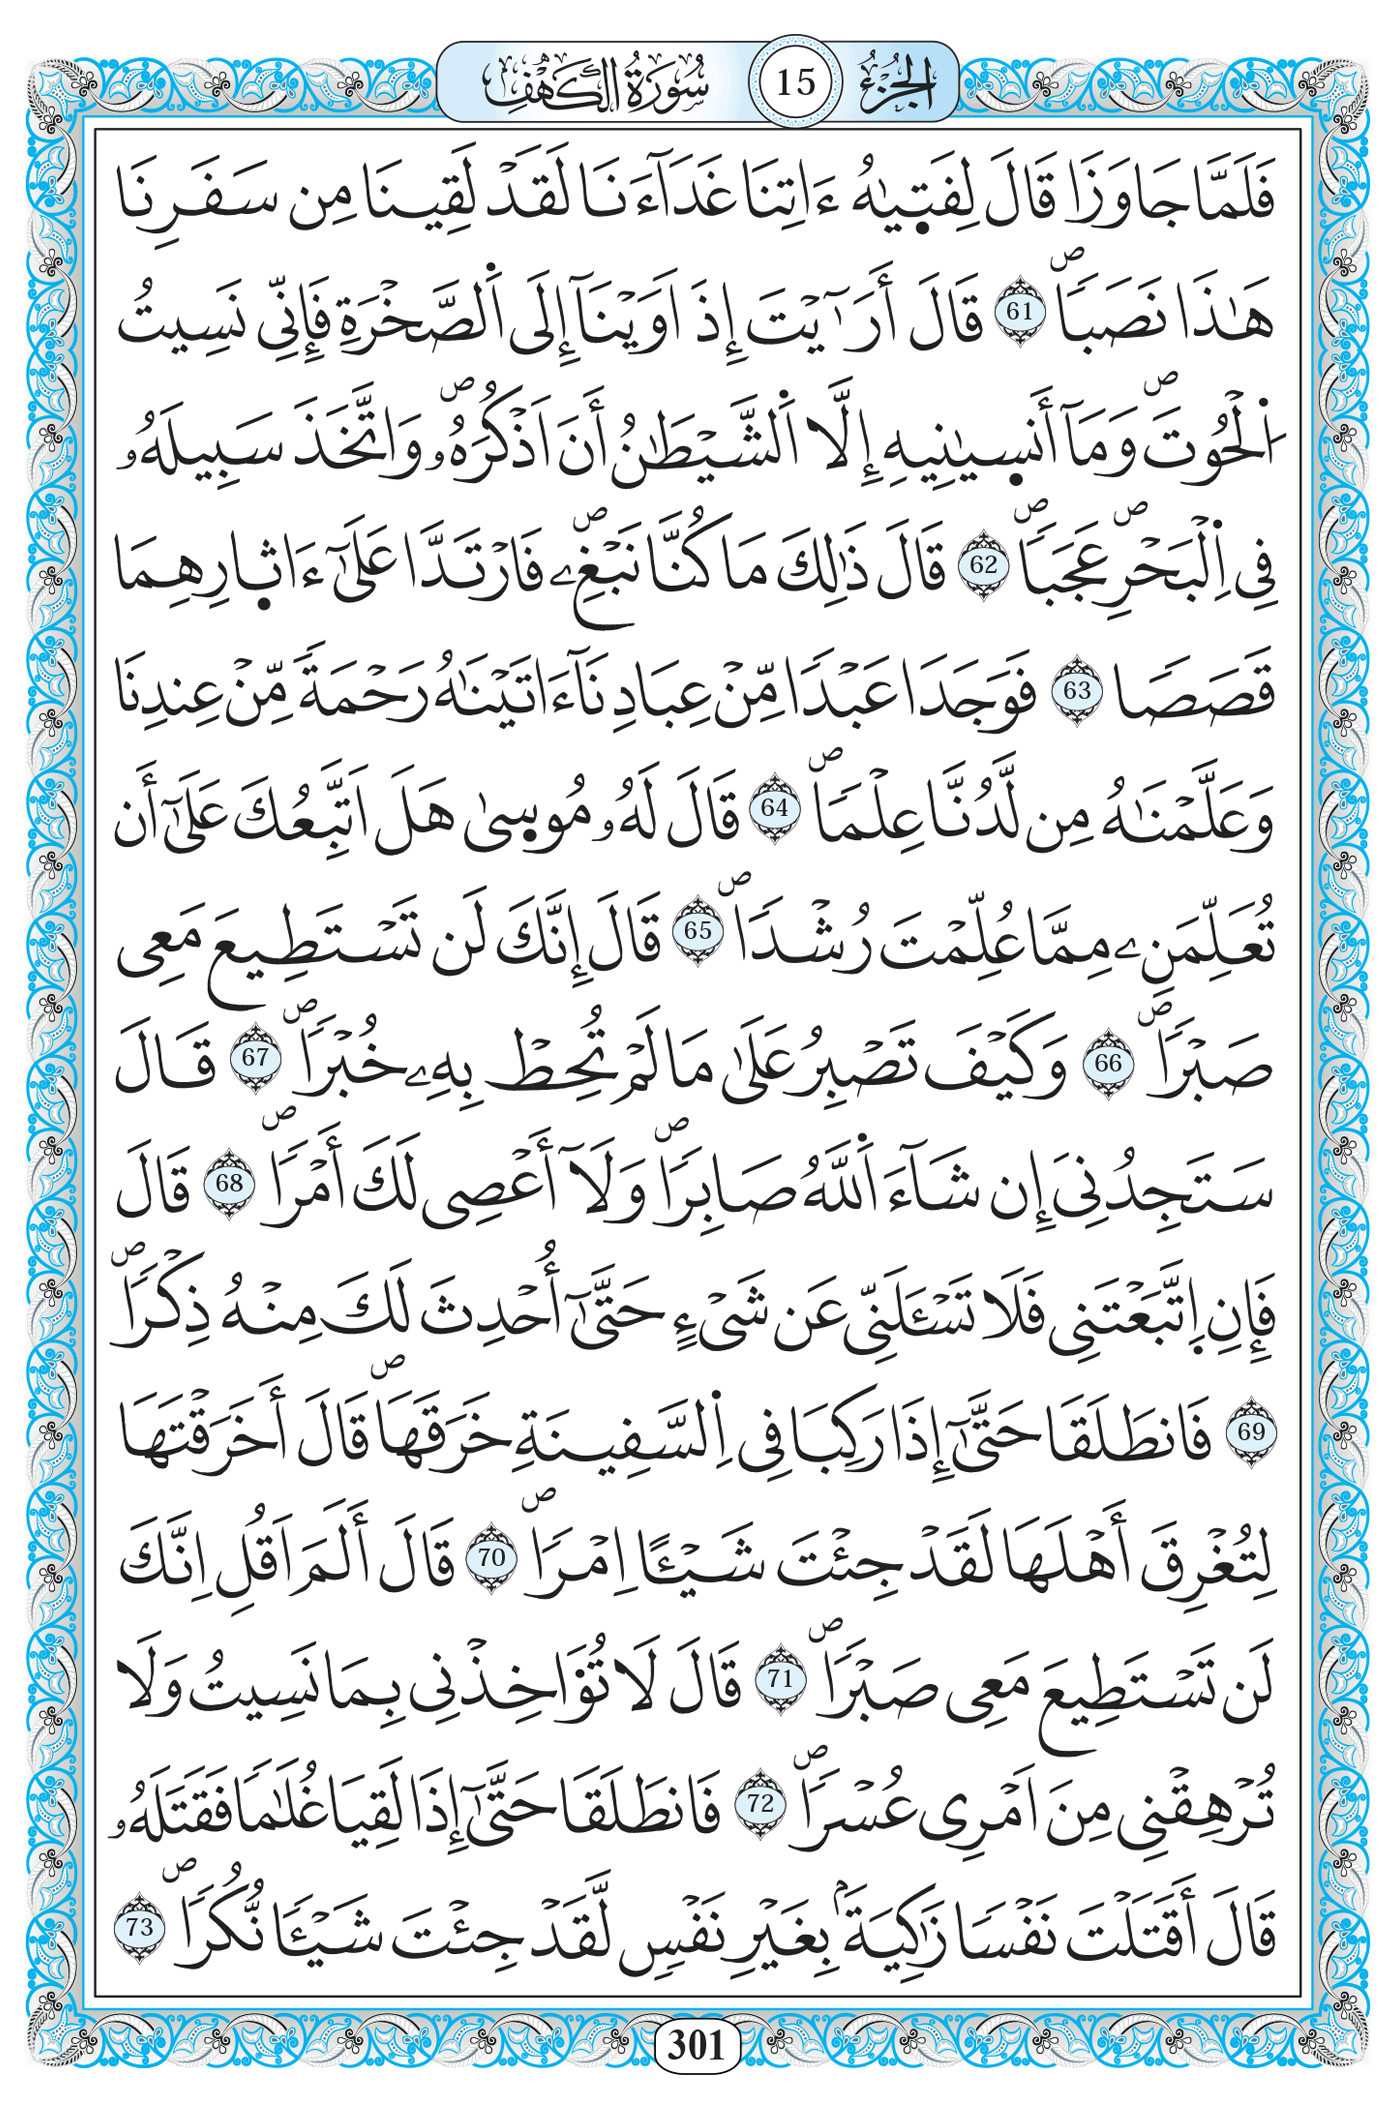 الجزء 15 سورة الكهف
فَلَمَّا جَاوَزَا قَالَ لِفَتٜىٰهُ ءَاتِنَا غَدَآءَنَا لَقَدْ لَقِينَا مِن سَفَرِنَا
هَٰذَا نَصَباٗۖ 61 قَالَ أَرَٰٓيْتَ إِذَ اَوَيْنَآ إِلَى اَ۬لصَّخْرَةِ فَإِنِّى نَسِيتُ
اُ۬لْحُوتَۖ وَمَآ أَنسٜىٰنِيهِ إِلَّا اَ۬لشَّيْطَٰنُ أَنَ اَذْكُرَهُۥۖ وَاتَّخَذَ سَبِيلَهُۥ
فِى اِ۬لْبَحْرِۖ عَجَباٗۖ 62 قَالَ ذَٰلِكَ مَا كُنَّا نَبْغِۦۖ فَارْتَدَّا عَلَىٰٓ ءَاثٜارِهِمَا
قَصَصاٗ 63 فَوَجَدَا عَبْداٗ مِّنْ عِبَادِنَآ ءَاتَيْنَٰهُ رَحْمَةٗ مِّنْ عِندِنَا
وَعَلَّمْنَٰهُ مِن لَّدُنَّا عِلْماٗۖ 64 قَالَ لَهُۥ مُوسٜىٰ هَلَ اَتَّبِعُكَ عَلَىٰٓ أَن
تُعَلِّمَنِۦ مِمَّا عُلِّمْتَ رُشْداٗۖ 65 قَالَ إِنَّكَ لَن تَسْتَطِيعَ مَعِى
صَبْراٗۖ 66 وَكَيْفَ تَصْبِرُ عَلَىٰ مَا لَمْ تُحِطْ بِهِۦ خُبْراٗۖ 67 قَالَ
سَتَجِدُنِىَ إِن شَآءَ اَ۬للَّهُ صَابِراٗۖ وَلَآ أَعْصِى لَكَ أَمْراٗۖ 68 قَالَ
فَإِنِ اِ۪تَّبَعْتَنِى فَلَا تَسْـَٔلَنِّى عَن شَىْءٍ حَتَّىٰٓ أُحْدِثَ لَكَ مِنْهُ ذِكْراٗۖ
69 فَانطَلَقَا حَتَّىٰٓ إِذَا رَكِبَا فِى اِ۬لسَّفِينَةِ خَرَقَهَاۖ قَالَ أَخَرَقْتَهَا
لِتُغْرِقَ أَهْلَهَا لَقَدْ جِئْتَ شَيْـٔاً اِمْراٗۖ 70 قَالَ أَلَمَ اَقُلِ اِنَّكَ
لَن تَسْتَطِيعَ مَعِى صَبْراٗۖ 71 قَالَ لَا تُؤَاخِذْنِى بِمَا نَسِيتُ وَلَا
تُرْهِقْنِى مِنَ اَمْرِى عُسْراٗۖ 72 فَانطَلَقَا حَتَّىٰٓ إِذَا لَقِيَا غُلَٰماٗ فَقَتَلَهُۥ
قَالَ أَقَتَلْتَ نَفْساٗ زَٰكِيَةَۢ بِغَيْرِ نَفْسٖ لَّقَدْ جِئْتَ شَيْـٔاٗ نُّكُراٗۖ 73
301